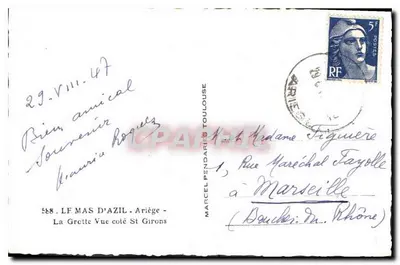 5F
POSTES
RF
ARIEGE
29.VIII.47
Bien amical
souvenir
Maurice
MARCEL PENDARIES TOULOUSE
CPARAMA
M. & Madame Figuière
1, Rue Maréchal Fayolle
à Marseille
(Bouches du Rhône)
LE MAS D'AZIL - Ariège -
La Grotte Vue coté St Girons